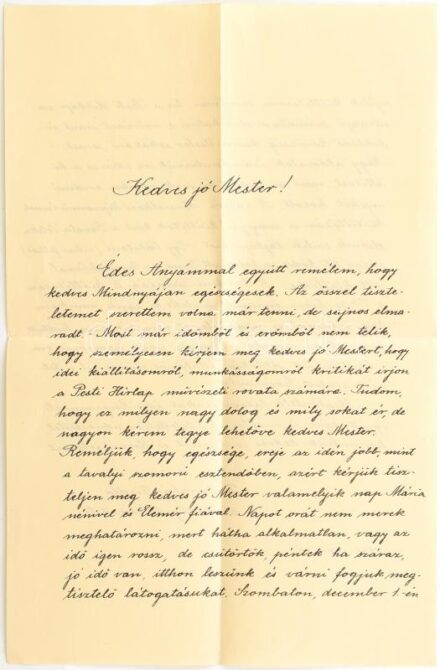 Kedves jó Mester!
Édes Anyámmal együtt remélem, hogy
kedves Mindnyáján egészségesek. Az ősszel tiszte-
letemet szerettem volna már tenni, de sujnos elma-
radt. - Most már időmből és erőmből nem telik,
hogy személyesen kérjem meg kedves jó Mestert, hogy
idei kiállításomról, munkásságomról kritikát írjon
a Pesti Hirlap művészeti rovata számára. Tudom,
hogy ez milyen nagy dolog és mily sokat ér, de
nagyon kérem tegye lehetővé kedves Mester.
Reméljük, hogy egészsége, ereje az idén jobb, mint
a tavalyi szomorú esztendőben, azért kérjük tisz-
teljen meg kedves jó Mester valamelyik nap Mária
nénivel és Elemér fiával. Napot órát nem merek
meghatározni, mert hátha alkalmatlan, vagy az
idő igen rossz, de csütörtök péntek ha száraz,
jó idő van, itthon leszünk és várni fogjuk meg-
tisztelő látogatásukat. Szombaton, december 1-én